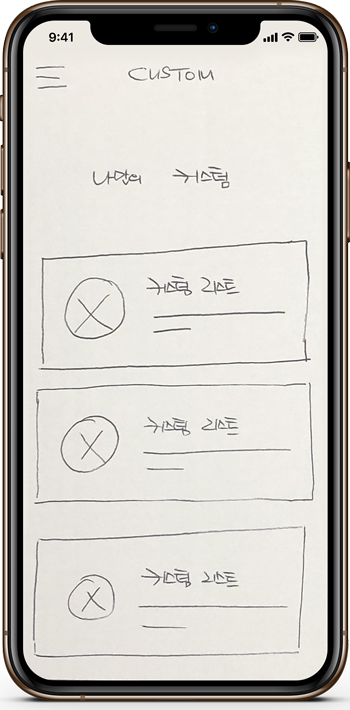 9:41
CUSTOM
나만의 커스텀
커스텀 리스트
커스텀 리스트
커스텀 리스트